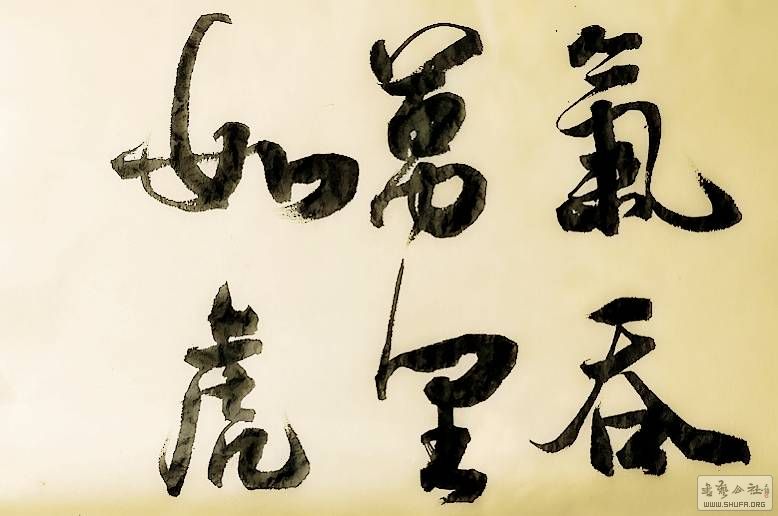 氣吞
萬里
如虎
書藝公社
WWW.SHUFA.ORG